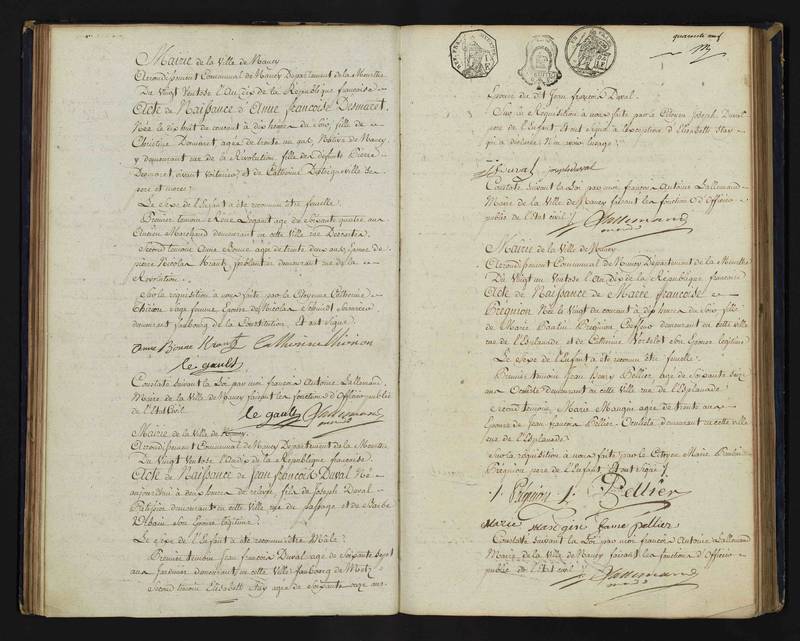 Mairie de la Ville de Nancy
Arrondissement Communal de Nancy Departement de la Meurthe
Du vingt Ventose l'An dix de la République francaise
Acte de Naissance d'Anne francoise Desmaret,
Née le dix huit du courant à dix heures du soir, fille de
Christine Desmaret agée de trente un ans, Native de Nancy
y demeurant rue de la Révolution, fille de defunts Pierre
Desmaret vivant voiturier et de Catherine
pere et mere;
Le Sexe de l'Enfant a été reconnu être femelle.
Premier temoin agé de Soixante quatre ans
Marchand demeurant en cette Ville rue
Second temoin Anne Bonne agée de trente deux ans, femme de
pierre Nicolas Krantz demeurant rue de la
Révolution.
Sur la requisition à nous faite par la Citoyenne Catherine
Thirion Sage femme, Epouse de Nicolas
demeurant faubourg de la Constitution, Et ont signé.
Anne Bonne Krantz Catherine Thirion
le gault
Constaté Suivant la Loi par moi françois Antoine Lallemand
Mairie de la Ville de Nancy faisant les fonctions d'Officier public
de l'Etat Civil.
le gault Lallemand
Mairie de la Ville de Nancy.
Arrondissement Communal de Nancy Departement de la Meurthe
Du vingt Ventose l'An dix de la République francaise.
Acte de Naissance de Jean francois Duval Né
aujourd'hui à deux heures de relevée, fils de Joseph Duval
demeurant en cette Ville rue de et de Barbe
Urbain son Epouse légitime.
Le Sexe de l'Enfant a été reconnu être Mâle.
Premier temoin Jean françois Duval agé de Soixante Sept
ans Jardinier demeurant en cette Ville faubourg de Metz
Second temoin Elisabeth agée de Soixante onze ans
quarante neuf
Epouse du dit Jean françois Duval.
Sur la Réquisition à nous faite par le Citoyen Joseph Duval
pere de l'Enfant Et ont signé à l'exception d'Elisabeth
qui a declaré N'en avoir l'usage;
Duval joseph duval
Constaté Suivant la Loi par moi françois Antoine Lallemand
Maire de la Ville de Nancy faisant les fonctions d'Officier
public de l'Etat civil
Lallemand
Mairie de la Ville de Nancy
Arrondissement Communal de Nancy Departement de la Meurthe
Du vingt un Ventose l'An dix de la République francaise
Acte de Naissance de Marie francoise
Prequion Née le Vingt du courant à dix heures du soir, fille
de Marie Prequion demeurant en cette ville
rue de l'Esplanade et de Catherine son Epouse légitime
Le Sexe de l'Enfant a été reconnu être femelle.
Premier temoin Jean Pellier agé de Soixante
ans Oculiste demeurant en cette Ville rue de l'Esplanade
Second temoin, Marie Mangin agée de trente ans
Epouse de Jean francois Pellier Oculiste demeurant en cette ville
rue de l'Esplanade
Sur la requisition à nous faite par le Citoyen Marie
Prequion pere de l'Enfant Et ont signé
Prequion J. Pellier
Marie Mangin femme pellier
Constaté Suivant la Loi par moi françois Antoine Lallemand
Maire de la Ville de Nancy faisant les fonctions d'Officier
public de l'Etat civil
Lallemand